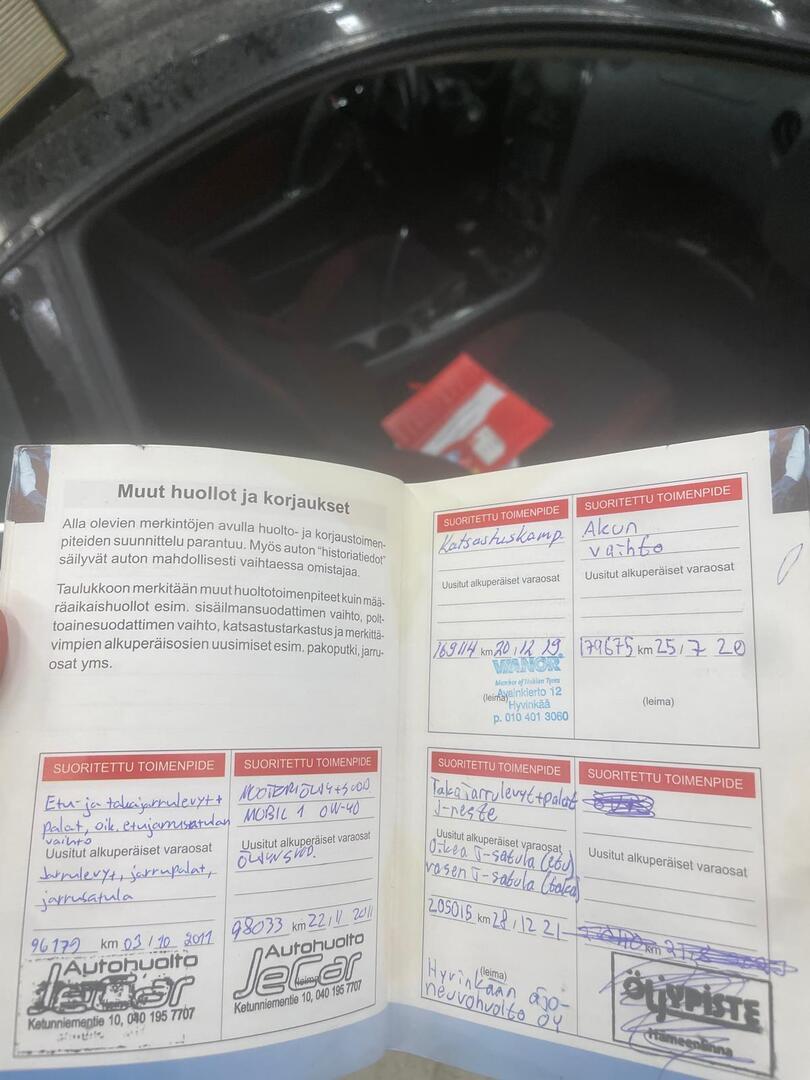 Muut huollot ja korjaukset
Alla olevien merkintöjen avulla huolto- ja korjaustoimen-
piteiden suunnittelu parantuu. Myös auton "historiatiedot"
säilyvät auton mahdollisesti vaihtaessa omistajaa.
Taulukkoon merkitään muut huoltotoimenpiteet kuin mää-
räaikaishuollot esim. sisäilmansuodattimen vaihto, polt-
toainesuodattimen vaihto, katsastustarkastus ja merkittä-
vimpien alkuperäisosien uusimiset esim. pakoputki, jarru-
osat yms.
SUORITETTU TOIMENPIDE
Etu- ja takajarrulevyt+
palat, oik. etujarrusatulan
vaihto
Uusitut alkuperäiset varaosat
Jarrulevyt, jarrupalat,
jarrusatula
96179 km 03/10 2011
Autohuolto
JeCar
Ketunniementie 10, 040 195 7707
SUORITETTU TOIMENPIDE
MOOTTORIÖLJY+SUOD
MOBIL 1 0W-40
Uusitut alkuperäiset varaosat
ÖLJYNSUOD.
98033 km 22/11 2011
Autohuolto
JeCar
(leima)
Ketunniementie 10, 040 195 7707
SUORITETTU TOIMENPIDE
Katsastuskamp.
Uusitut alkuperäiset varaosat
169114 km 20/12 19.
VIANOR
Member of Nokian Tyres
(leima)
Avainkierto 12
Hyvinkää
p. 010 401 3060
SUORITETTU TOIMENPIDE
Akun
vaihto
Uusitut alkuperäiset varaosat
179675 km 25/7 20
(leima)
SUORITETTU TOIMENPIDE
Takajarrulevyt+palat
J-neste
Uusitut alkuperäiset varaosat
Oikea J-satula (etu)
vasen J-satula (taka)
205015 km 28/12 21
(leima)
Hyvinkään ajo-
neuvohuolto OY
SUORITETTU TOIMENPIDE
Uusitut alkuperäiset varaosat
km
ÖLJYPISTE
Hämeenlinna